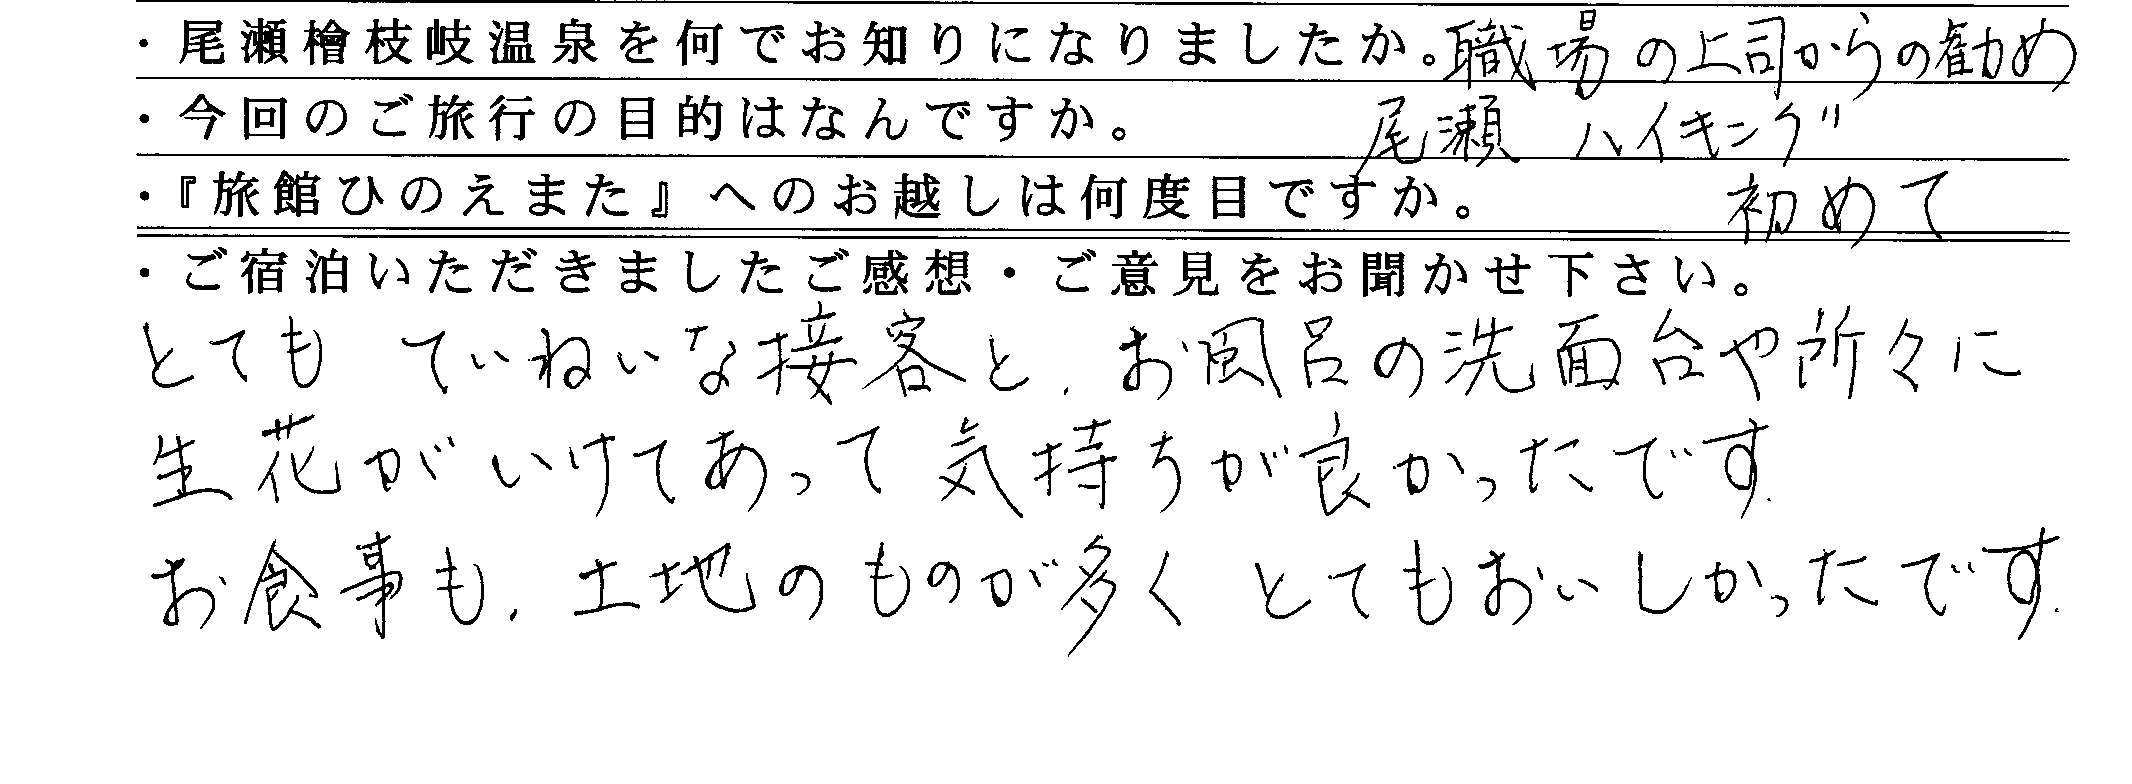 ・尾瀬檜枝岐温泉を何でお知りになりましたか。職場の上司からの勧め
・今回のご旅行の目的はなんですか。 尾瀬 ハイキング
・『旅館ひのえまた』へのお越しは何度目ですか。 初めて
・ご宿泊いただきましたご感想・ご意見をお聞かせ下さい。
とても ていねいな接客と、お風呂の洗面台や所々に
生花がいけてあって気持ちが良かったです。
お食事も、土地のものが多く とてもおいしかったです。